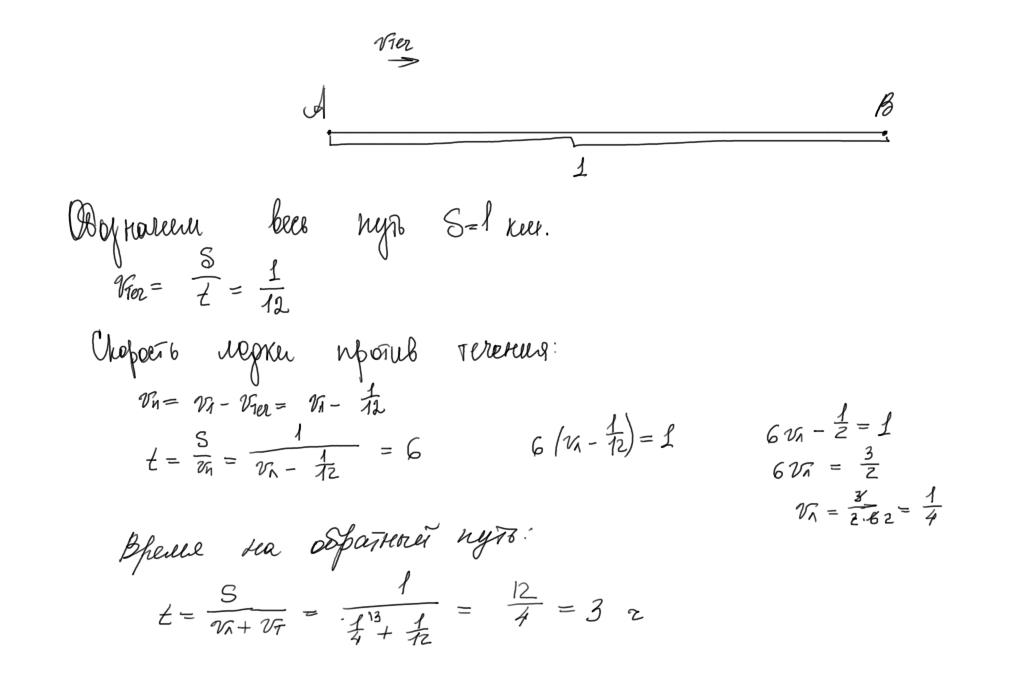 vтеч
A B
1
Обозначим весь путь S=1 км.
vтеч = S/t = 1/12
Скорость лодки против течения:
vп = vл - vтеч = vл - 1/12
t = S/vп = 1/(vл - 1/12) = 6 6(vл - 1/12) = 1 6vл - 1/2 = 1
6vл = 3/2
vл = 3/(2·6 2) = 1/4
Время на обратный путь:
t = S/(vл + vт) = 1/(1/4 \3 + 1/12) = 12/4 = 3 ч